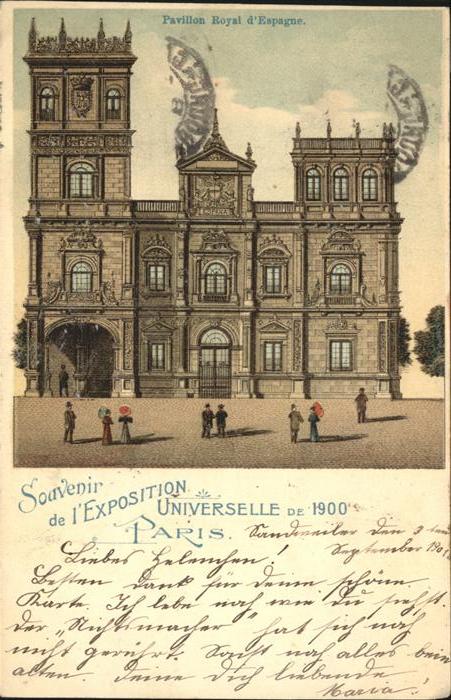 Pavillon Royal d'Espagne.
ESPAÑA
Souvenir
de l'EXPOSITION
UNIVERSELLE DE 1900
PARIS.
Sandweiler den 3
September 190
Liebes Helenchen!
Besten Dank für deine schöne
Karte. Ich lebe noch wie du siehst.
Der „Nichtsmacher" hat sich noch
nicht gerührt. Sonst noch alles beim
alten. Deine dich liebende
Maria.